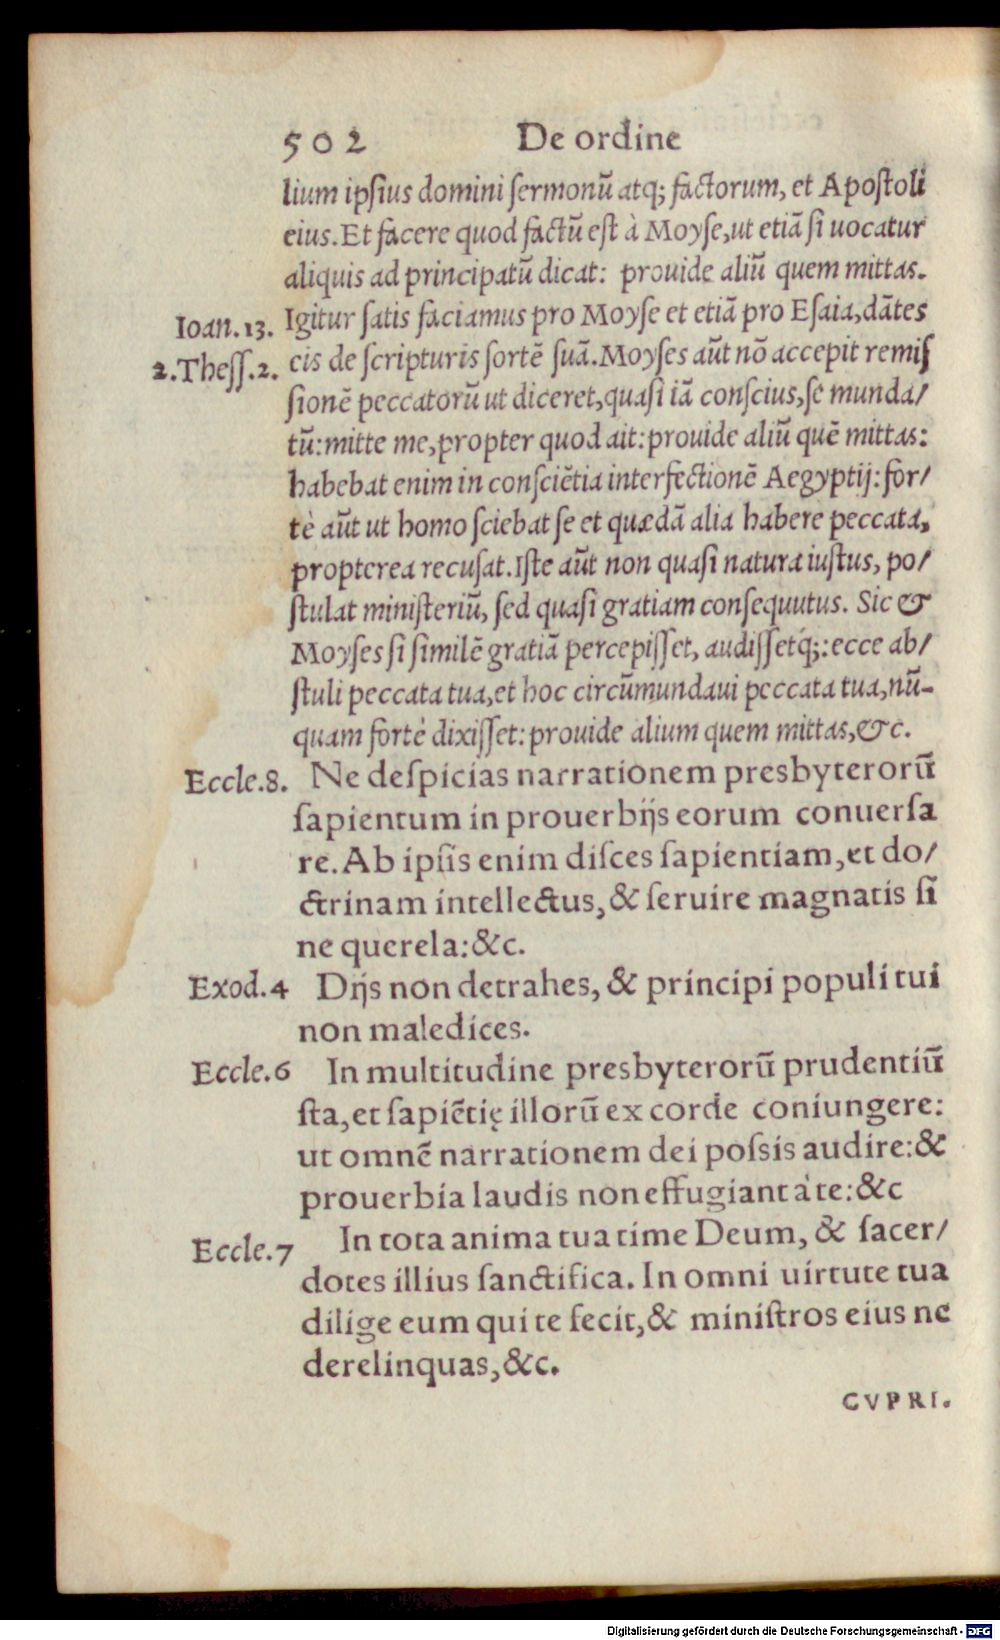 502 De ordine
lium ipſius domini ſermonũ atq; factorum, et Apoſtoli
eius. Et facere quod factũ eſt à Moyſe, ut etiã ſi uocatur
aliquis ad principatũ dicat: prouide aliũ quem mittas.
Ioan. 13. Igitur ſatis faciamus pro Moyſe et etiã pro Eſaia, dãtes
2. Theſſ. 2. eis de ſcripturis ſortẽ ſuã. Moyſes aũt nõ accepit remiſ
ſionẽ peccatorũ ut diceret, quaſi iã conſcius, ſe munda/
tũ: mitte me, propter quod ait: prouide aliũ quẽ mittas:
habebat enim in conſciẽtia interfectionẽ Aegyptij: for/
tè aũt ut homo ſciebat ſe et quædã alia habere peccata,
propterea recuſat. Iſte aũt non quaſi natura iuſtus, po/
ſtulat miniſteriũ, ſed quaſi gratiam conſequutus. Sic &
Moyſes ſi ſimilẽ gratiã percepiſſet, audiſſetq́;: ecce ab/
ſtuli peccata tua, et hoc circũmundaui peccata tua, nũ-
quam fortè dixiſſet: prouide alium quem mittas, &c.
Eccle. 8. Ne deſpicias narrationem presbyterorũ
ſapientum in prouerbijs eorum conuerſa
re. Ab ipſis enim diſces ſapientiam, et do/
ctrinam intellectus, & ſeruire magnatis ſi
ne querela: &c.
Exod. 4 Dijs non detrahes, & principi populi tui
non maledices.
Eccle. 6 In multitudine presbyterorũ prudentiũ
ſta, et ſapiẽtię illorũ ex corde coniungere:
ut omnẽ narrationem dei poſsis audire: &
prouerbia laudis non effugiant à te: &c
Eccle. 7 In tota anima tua time Deum, & ſacer/
dotes illius ſanctifica. In omni uirtute tua
dilige eum qui te fecit, & miniſtros eius ne
derelinquas, &c.
CVPRI.
Digitalisierung gefördert durch die Deutsche Forschungsgemeinschaft - DFG